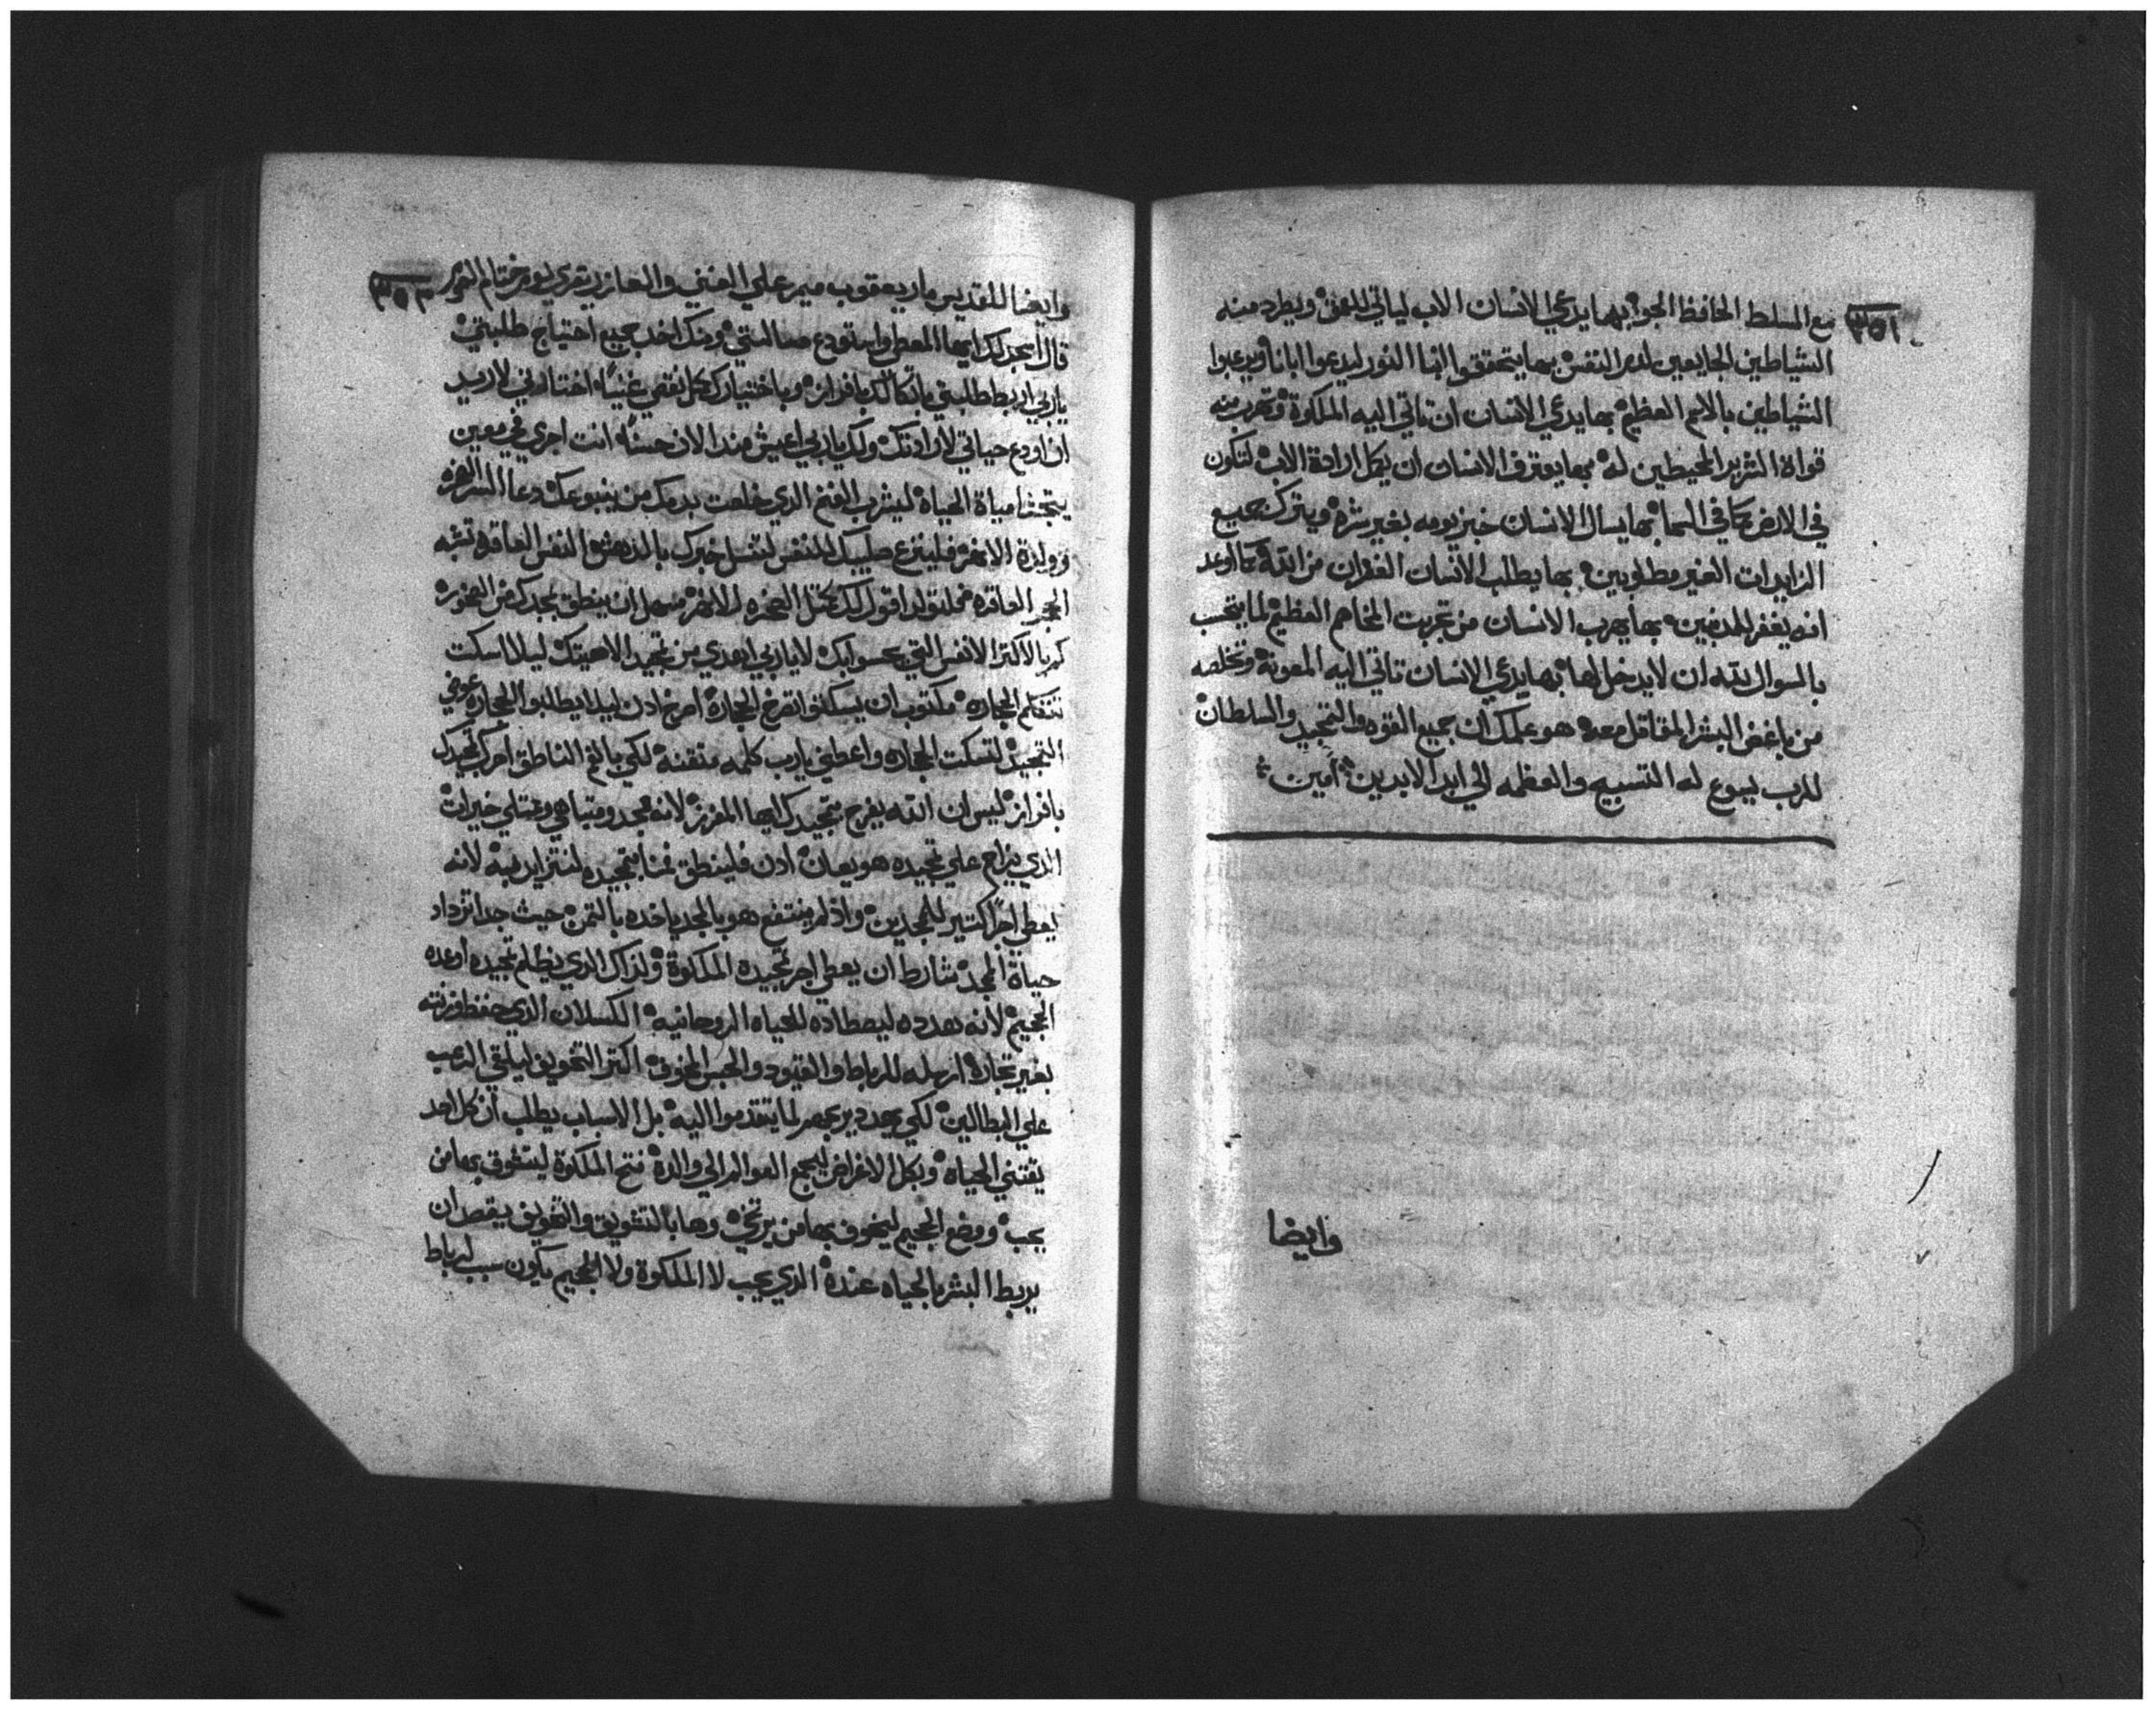 ٣٥١
مع المسلط الحافظ الجو بها يدعي الانسان الاب لياتي للمعونة ويطرد منه
الشياطين الجايعين لدم النفس بها يتحققوا ابنا النور ليدعوا ابانا ويرعبوا
الشياطين بالاسم العظيم بها يدعي الانسان ان تاتي اليه الملكوة وتهرب منه
قواة الشرير المحيطين له بها يعترف الانسان ان يكمل ارادة الاب لتكون
في الارض كما في السما بها يسال الانسان خبز يومه بغير شره ويترك جميع
الزايدات الغير مطلوبين بها يطلب الانسان الغفران من الله كما اوعد
انه يغفر للمدنبين بها يهرب الانسان من تجربت المخاصم العظيم لما يتقرب
بالسوال لله ان لا يدخل لها بها يدعي الانسان تاتي اليه المعونة وتخلصه
من باغض البشر المقاتل معه هو علمك ان جميع القوه والتمجيد والسلطان
للرب يسوع له التسبيح والعظمه الي ابد الابدين امين
وايضا
٣٥٢
وايضا للقديس مار يعقوب ميمر علي الغني والعازر يقري يوم ختام الصوم
قال اسجد لك ايها المعطي واستودع مسالتي ومنك اخد جميع احتياج طلبتي
يا ربي اربط طلبتي باتكالك بافراز وباختيارك كمل نقصي غنيا اختارني لاريد
ان اودع حياتي لارادتك ولك يا ربي اعيش مند الان حسنا انت اجري في معين
مياة الحياة ليشرب الغنم الدي خلصت بدمك من ينبوعك
فلينزع صليبك للنفس بالدهش النفس العاقره تشبه
الحجر العاقره لك مثل الصخره ان ينطق بمجدك من الصخوره
الانفس التي لا يا ربي من تمجيد لاهيتك ليلا اسكت
تتكلم الحجاره مكتوب ان يسكتوا تصرخ الحجارة اصرخ ادن ليلا يطلبوا الحجاره عوضي
التمجيد لتسكت الحجاره واعطيني يا رب كلمه متقنه لكي بالفم الناطق احرك تمجيدك
بافراز ليس ان الله يفرح بتمجيدك ايها المفرز لانه ممجد ومتباهي وممتلي خيرات
الدي علي تمجيده هو يعان ادن فلينطق فمنا بتمجيده لنتزايد به لانه
يعطي اجرا كتير للممجدين واذ لم ينتفع هو بالمجد ياخده بالتمن حيث جدا تزداد
حياة المجد شارط ان يعطي اجر تمجيده الملكوة ولذاك الدي يظلم تمجيده اوعده
الجحيم لانه يهدده ليصطاده للحياه الروحانيه الكسلان الدي حفظ وزنته
بغير تجارة ارسله للرباط والقيود والحبس المخوف اكتر التخويف ليلقي الرعب
علي البطالين لكي لما يتقدموا اليه بل الاسباب يطلب ان كل احد
يقتني الحياه وبكل الاغراض ليجمع العوالم الي والده فتح الملكوة ليشوق بها من
يحب ووضع الجحيم ليخوف بها من يرتخي وها بالتشويق والتخويف يقصد ان
يربط البشر بالحياه عنده الدي يحب لا الملكوة ولا الجحيم يكون سبب لرباط